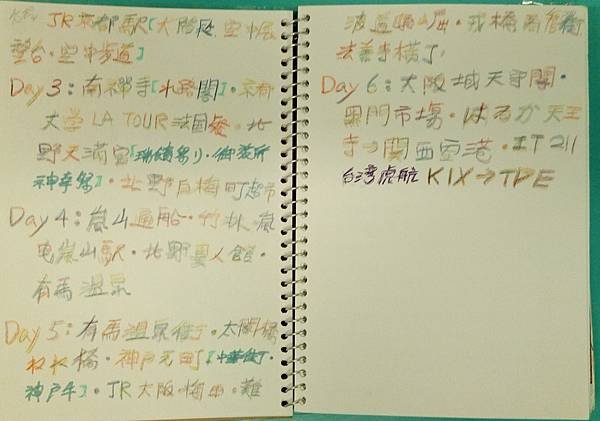 JR京都駅【大階段.空中展
望台.空中步道】
Day 3:南禪寺【水路閣】.京都
大学LA TOUR法國餐.北
野天滿宮【瑞饋祭】.御旅所
神幸祭】.北野白梅町超市
Day 4:嵐山遊船.竹林.嵐
电嵐山駅.北野異人館.
有馬溫泉
Day 5:有馬溫泉街.太閣橋
ねね橋.神戶元町【中華街.
神戶牛】.JR大阪.梅田.難
波道頓堀.戎橋.
法善寺橫丁.
Day 6:大阪城天守閣.
黑門市場.はるか天王
寺→關西空港.IT 211
台湾虎航 KIX→TPE